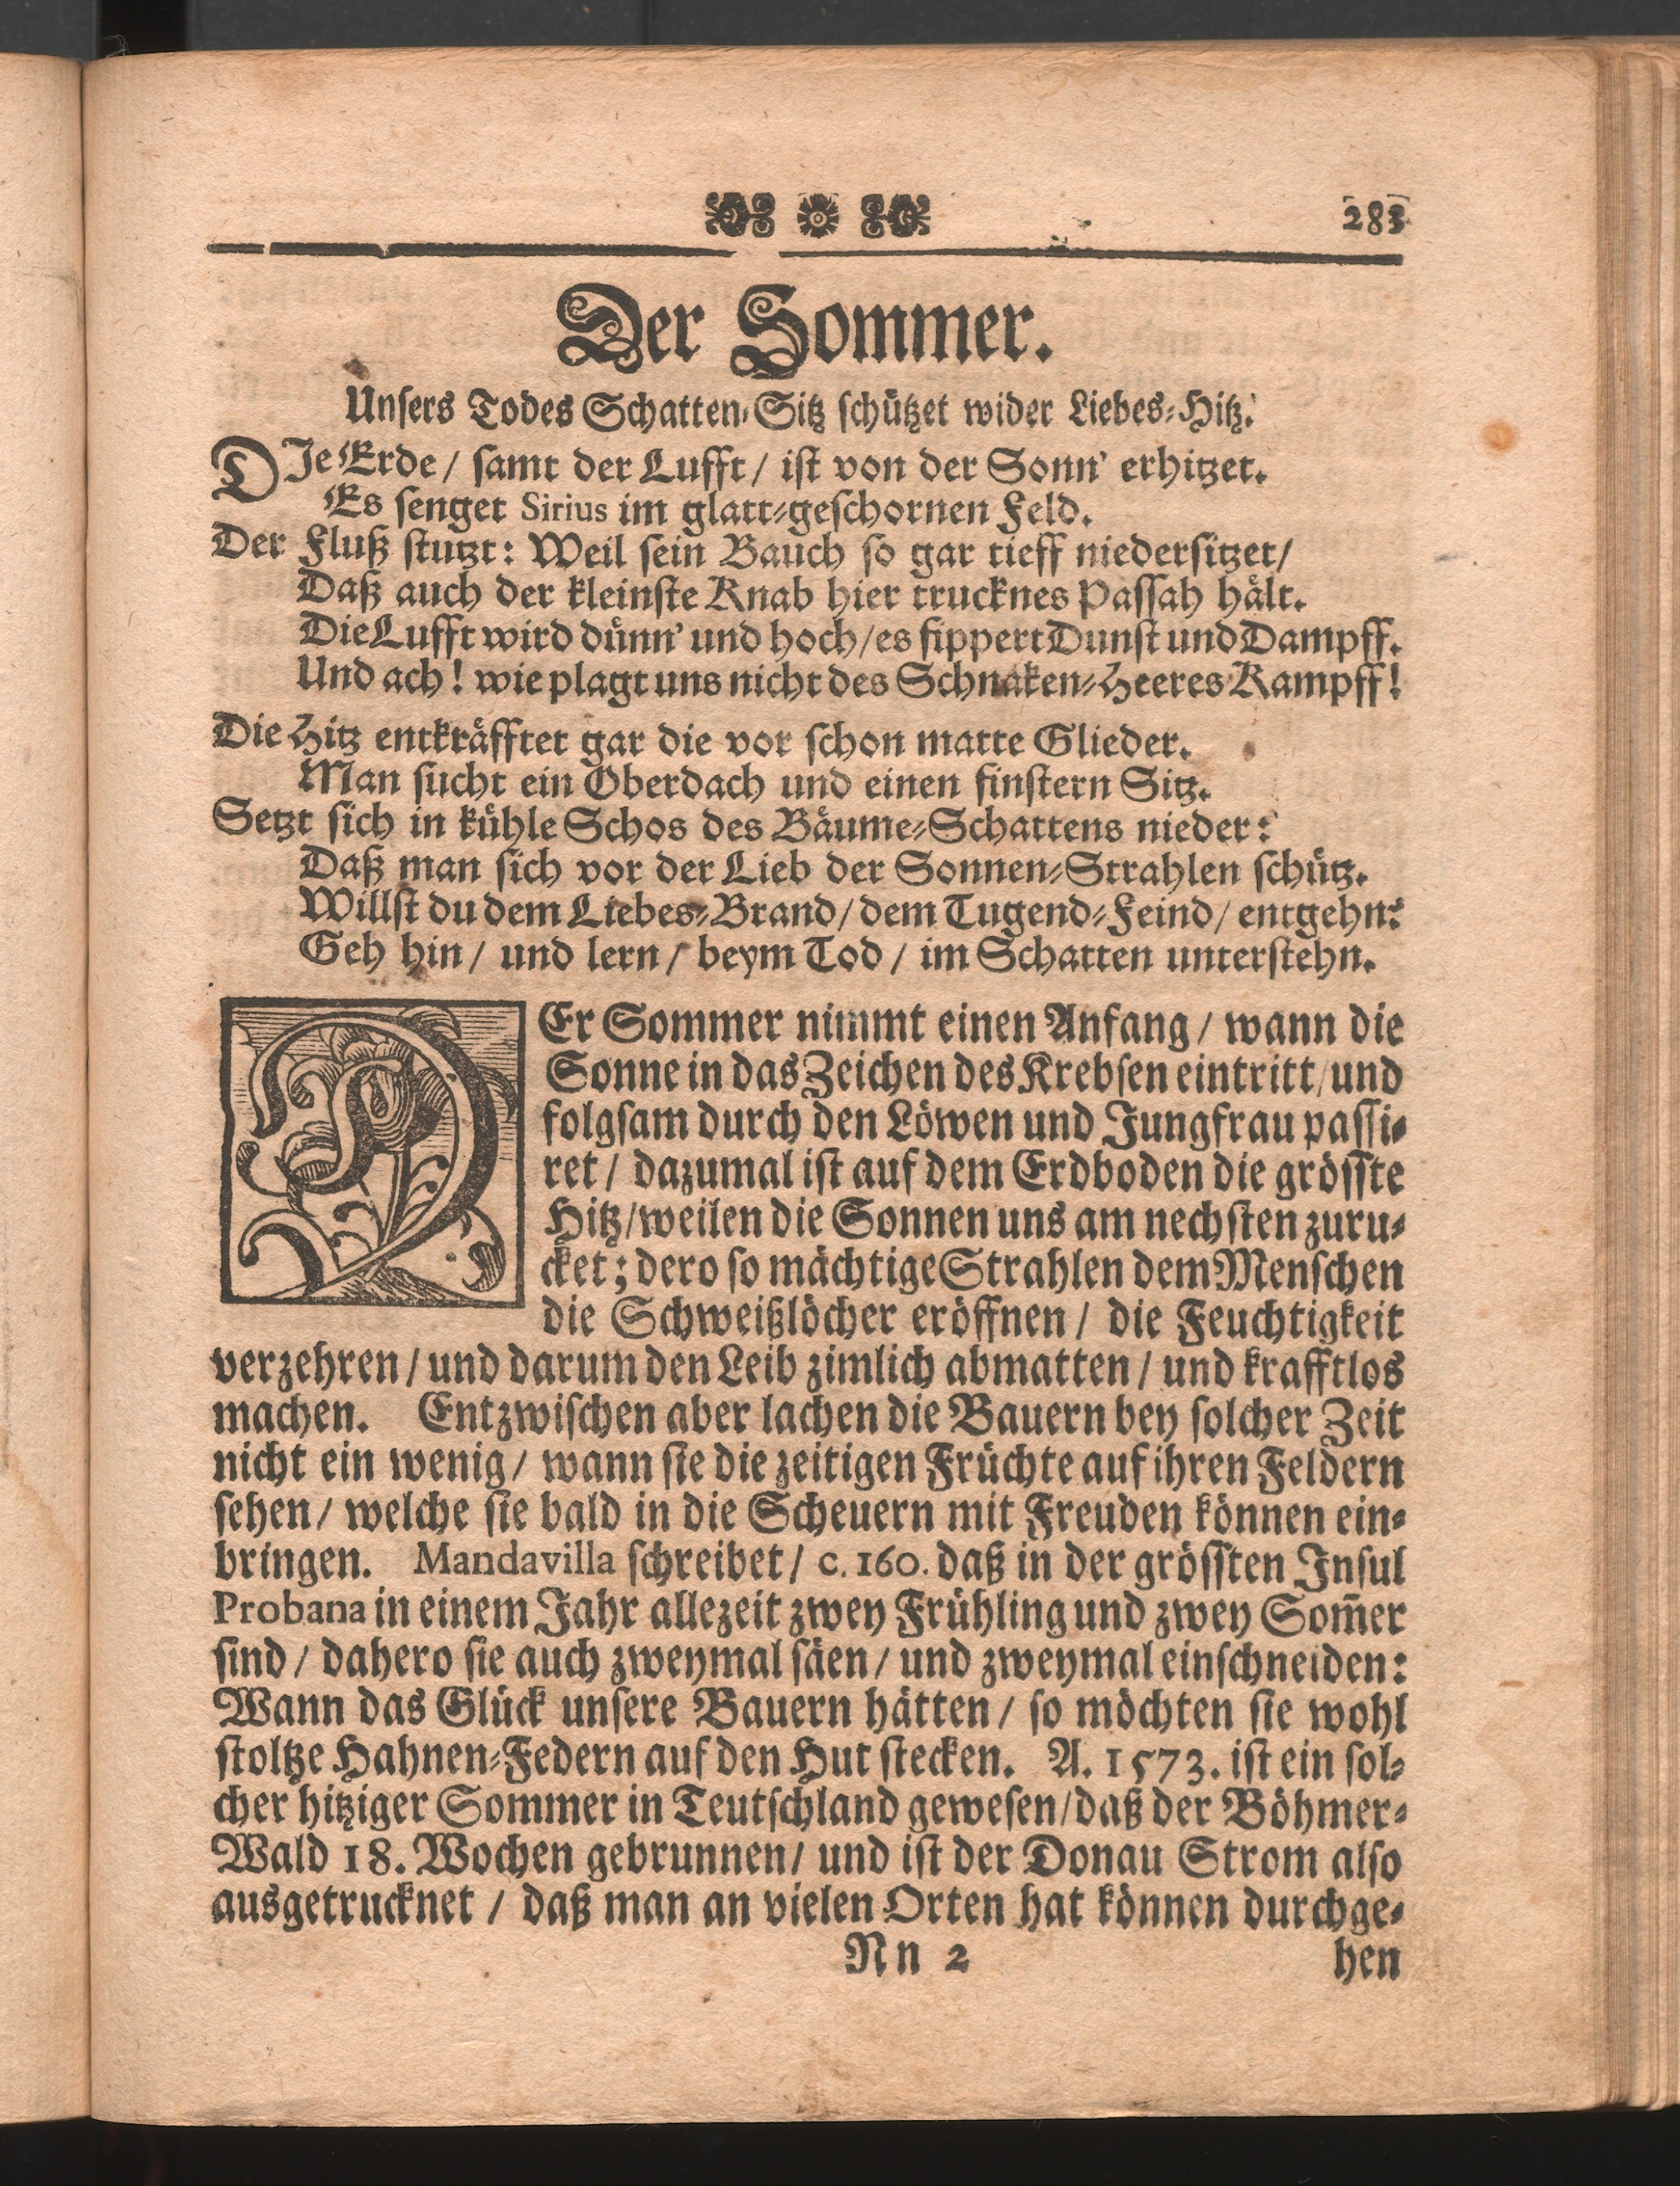 283
Der Sommer.
Unsers Todes Schatten-Sitz schützet wider Liebes-Hitz.
DIe Erde / samt der Lufft / ist von der Sonn' erhitzet.
Es senget Sirius im glatt-geschornen Feld.
Der Fluß stutzt: Weil sein Bauch so gar tieff niedersitzet /
Daß auch der kleinste Knab hier trucknes Passah hält.
Die Lufft wird dünn' und hoch / es fippert Dunst und Dampff.
Und ach! wie plagt uns nicht des Schnaken-Heeres Kampff!
Die Hitz entkräfftet gar die vor schon matte Glieder.
Man sucht ein Oberdach und einen finstern Sitz.
Setzt sich in kühle Schos des Bäume-Schattens nieder:
Daß man sich vor der Lieb der Sonnen-Strahlen schütz.
Willst du dem Liebes-Brand / dem Tugend-Feind / entgehn:
Geh hin / und lern / beym Tod / im Schatten unterstehn.
DEr Sommer nimmt einen Anfang / wann die
Sonne in das Zeichen des Krebsen eintritt / und
folgsam durch den Löwen und Jungfrau passi-
ret / dazumal ist auf dem Erdboden die grösste
Hitz / weilen die Sonnen uns am nechsten zuru-
cket; dero so mächtige Strahlen dem Menschen
die Schweißlöcher eröffnen / die Feuchtigkeit
verzehren / und darum den Leib zimlich abmatten / und krafftlos
machen. Entzwischen aber lachen die Bauern bey solcher Zeit
nicht ein wenig / wann sie die zeitigen Früchte auf ihren Feldern
sehen / welche sie bald in die Scheuern mit Freuden können ein-
bringen. Mandavilla schreibet / c. 160. daß in der grössten Insul
Probana in einem Jahr allezeit zwey Frühling und zwey Som̃er
sind / dahero sie auch zweymal säen / und zweymal einschneiden:
Wann das Glück unsere Bauern hätten / so möchten sie wohl
stoltze Hahnen-Federn auf den Hut stecken. A. 1573. ist ein sol-
cher hitziger Sommer in Teutschland gewesen / daß der Böhmer-
Wald 18. Wochen gebrunnen / und ist der Donau Strom also
ausgetrucknet / daß man an vielen Orten hat können durchge-
Nn 2 hen